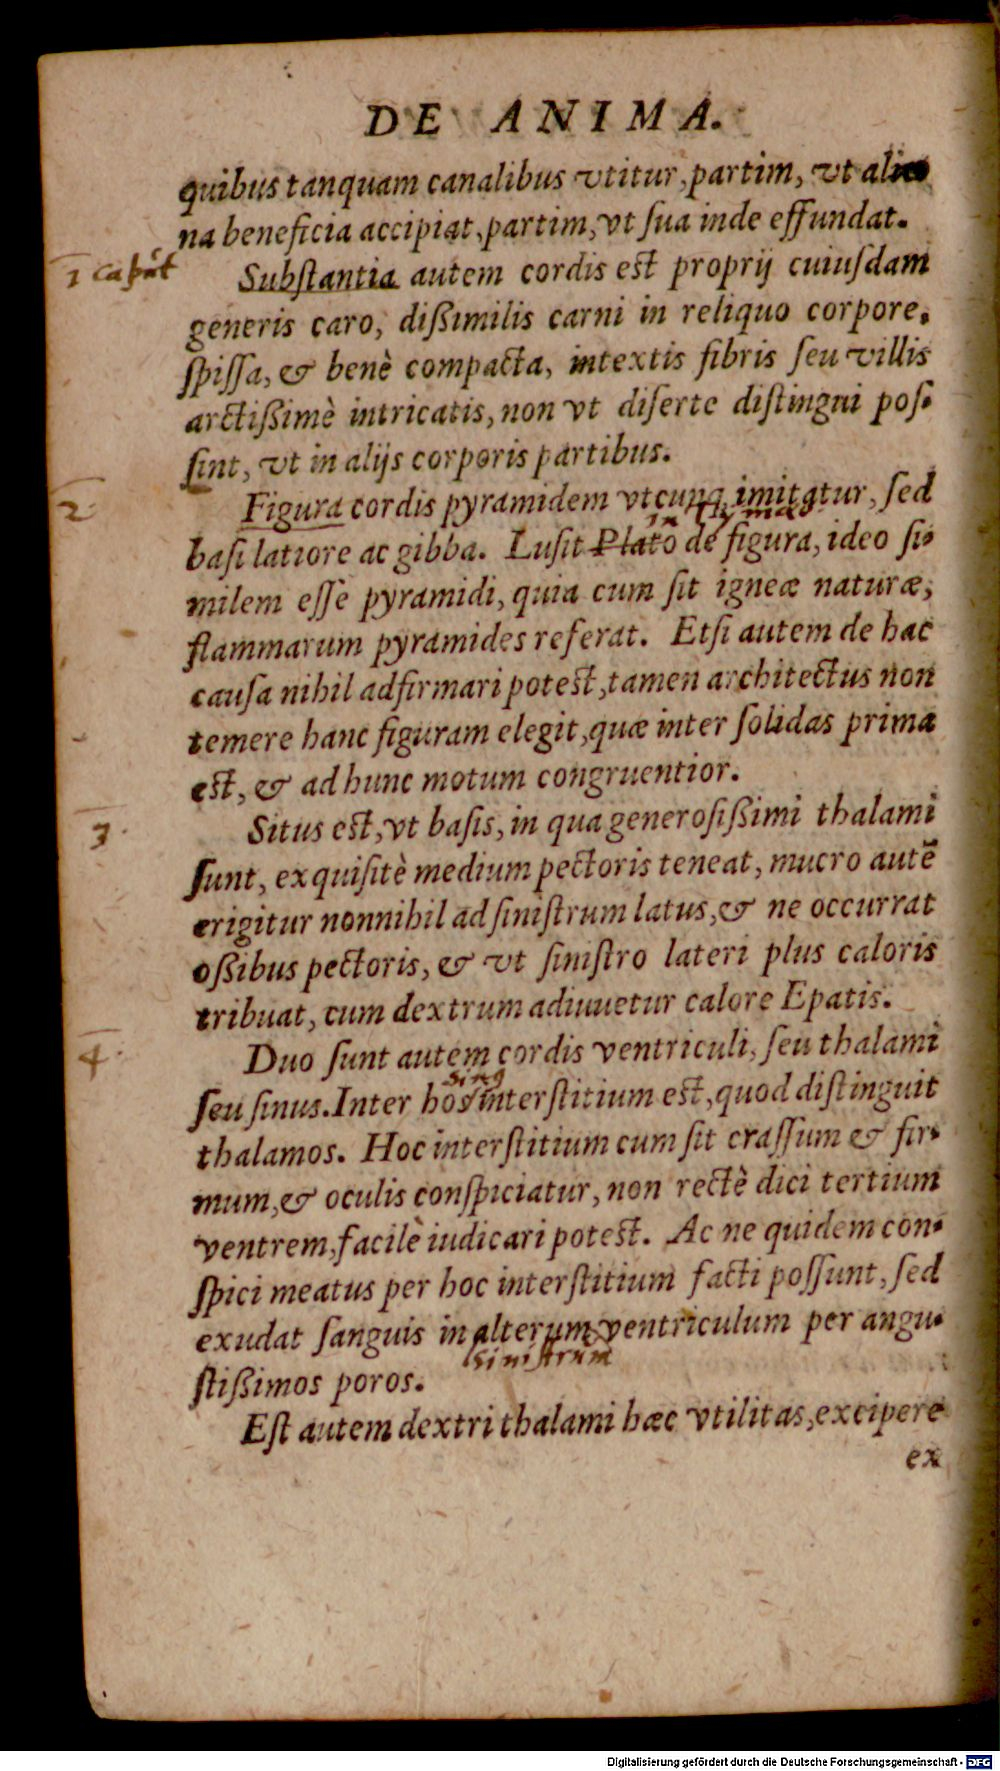 DE ANIMA.
quibus tanquam canalibus vtitur, partim, vt alie
na beneficia accipiat, partim, vt ſua inde effundat.
1 caput
Subſtantia autem cordis eſt proprij cuiuſdam
generis caro, dißimilis carni in reliquo corpore,
ſpiſſa, & benè compacta, intextis fibris ſeu villis
arctißimè intricatis, non vt diſerte diſtingui poſ-
ſint, vt in alijs corporis partibus.
2.
Figura cordis pyramidem vtcunq imitatur, ſed
in Thymaeo
baſi latiore ac gibba. Luſit Plato de figura, ideo ſi-
milem eſſe pyramidi, quia cum ſit igneæ naturæ,
flammarum pyramides referat. Etſi autem de hac
cauſa nihil adfirmari poteſt, tamen architectus non
temere hanc figuram elegit, quæ inter ſolidas prima
eſt, & ad hunc motum congruentior.
3.
Situs eſt, vt baſis, in qua generoſißimi thalami
ſunt, exquiſitè medium pectoris teneat, mucro autē
erigitur nonnihil ad ſiniſtrum latus, & ne occurrat
oßibus pectoris, & vt ſiniſtro lateri plus caloris
tribuat, cum dextrum adiuuetur calore Epatis.
4.
Duo ſunt autem cordis ventriculi, ſeu thalami
ſeu ſinus. Inter hos interſtitium eſt, quod diſtinguit
thalamos. Hoc interſtitium cum ſit craſſum & fir-
mum, & oculis conſpiciatur, non rectè dici tertium
ventrem, facilè iudicari poteſt. Ac ne quidem con-
ſpici meatus per hoc interſtitium facti poſſunt, ſed
exudat ſanguis in alterum ventriculum per angu-
ſiniſtrum
ſtißimos poros.
Eſt autem dextri thalami hæc vtilitas, excipere
ex
Digitalisierung gefördert durch die Deutsche Forschungsgemeinschaft - DFG